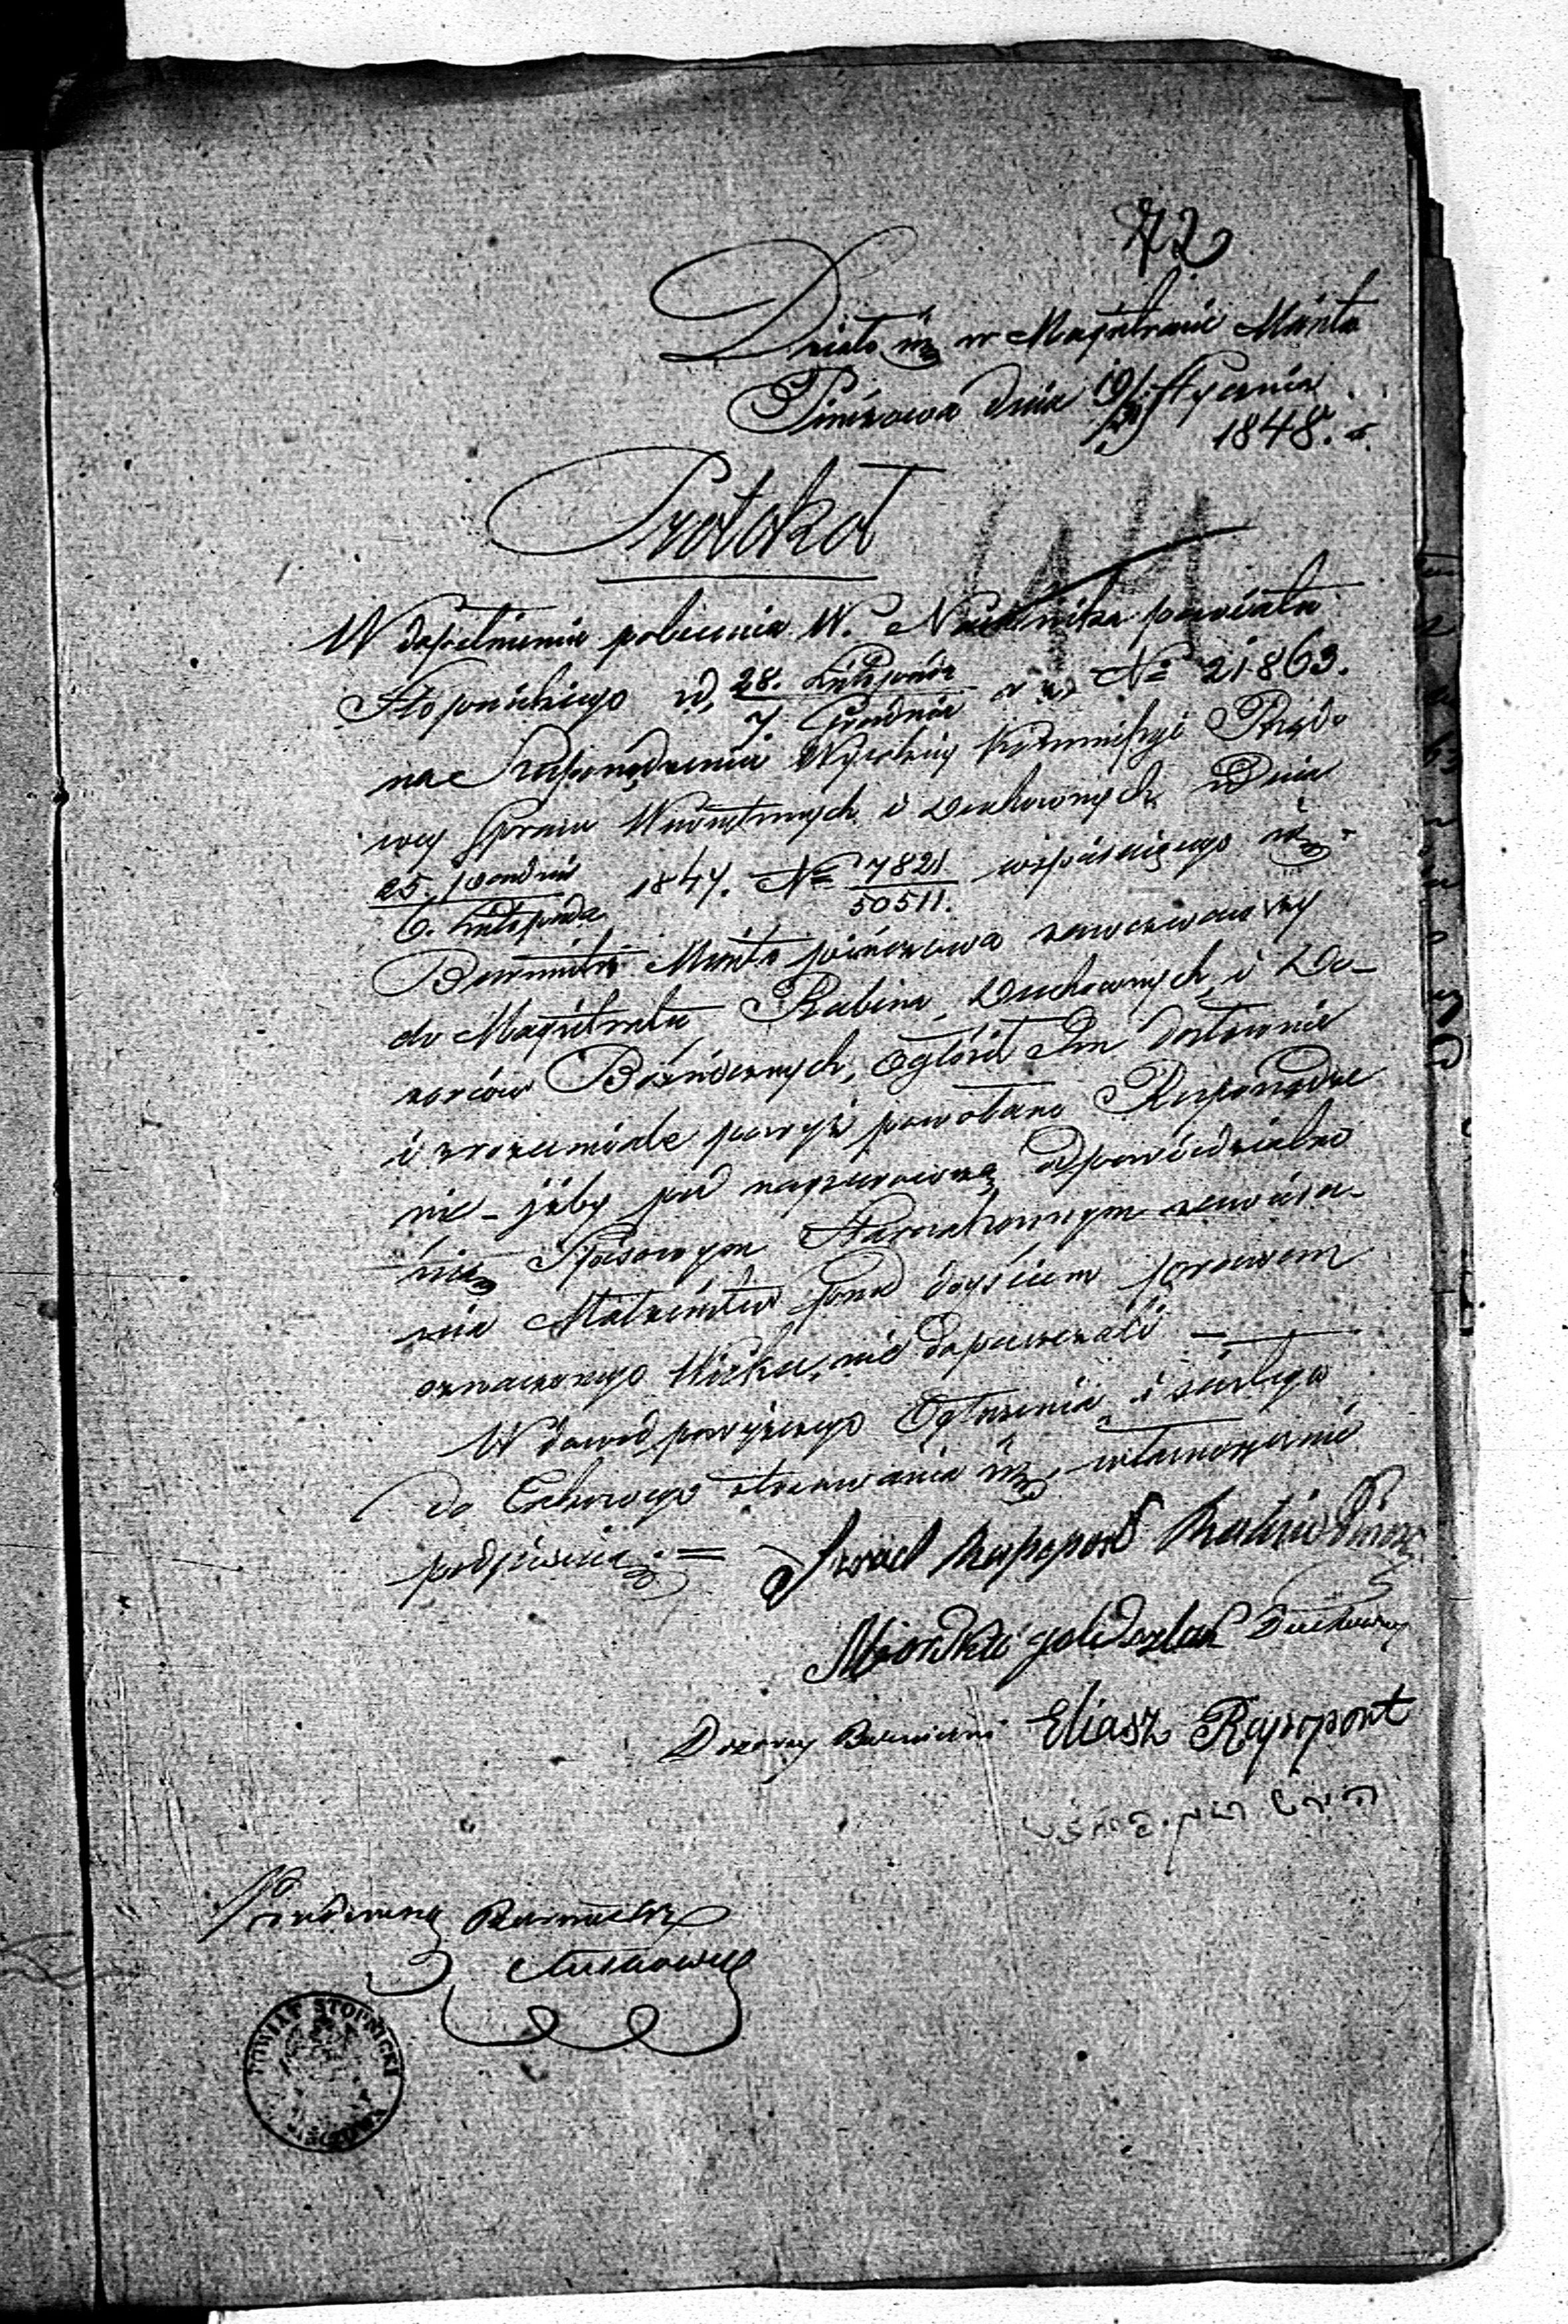 72
Działo się w Magistracie Miasta
Pińczowa dnia 19/31 Stycznia
1848. r.
Protokół
W dopełnieniu polecenia W. Naczelnika powiatu
Stopnickiego z d. 28. Listopada / 7 Grudnia r. z. № 21863.
na Rozporządzenia Wysokiey Kommissyi Rządo
wey Spraw Wewnętrznych i Duchownych z Dnia
25. / 6. Listopada 1847. № 7821 / 50511. wspierającego się
Burmistrz Miasta pińczowa zawezwawszy
do Magistratu Rabina, Duchownych, i Do-
zorców Bóżniczych, Ogłosił Im dosłownie
i zrozumiale powyż powołane Rozporządze
nie – jżby pod najsurowszą odpowiedzialno
ścią
nia Małżeństw przed dojściem prawem
oznaczonego Wieku, nie dopuszczali –
W dowód powyższego Ogłoszenia i ścisłego
do Takowego stosowania się własnoręcznie
podpisują. =
Izrael Rapoport Rabin
Mordka goldszlak Duchowny
Dozorcy Bożniczni Eliasz Rapoport
הירש
Burmistrz
POWIAT STOPNICKI